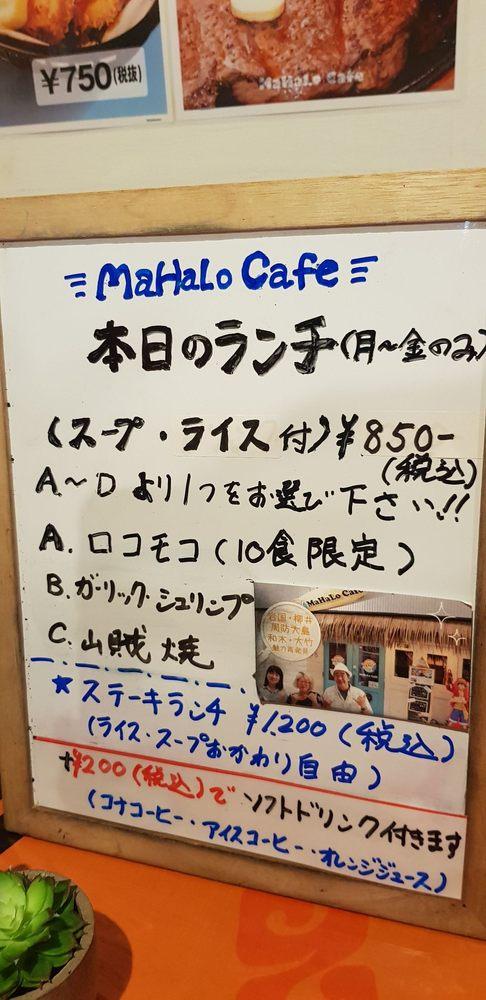 ¥750(税抜)
MaHaLo Cafe
MaHaLo Cafe
本日のランチ(月~金のみ)
(スープ・ライス付)¥850-
(税込)
A~Dより1つをお選び下さい!!
A.ロコモコ(10食限定)
B.ガーリック・シュリンプ
C.山賊焼
MaHaLo Cafe
岩国・柳井
周防大島
和木・大竹
魅力再発見
★ステーキランチ ¥1,200(税込)
(ライス・スープおかわり自由)
+¥200(税込)で ソフトドリンク付きます
(コナコーヒー・アイスコーヒー・オレンジジュース)